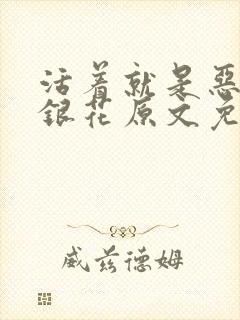 活着就是恶
银花原文免
威兹德姆